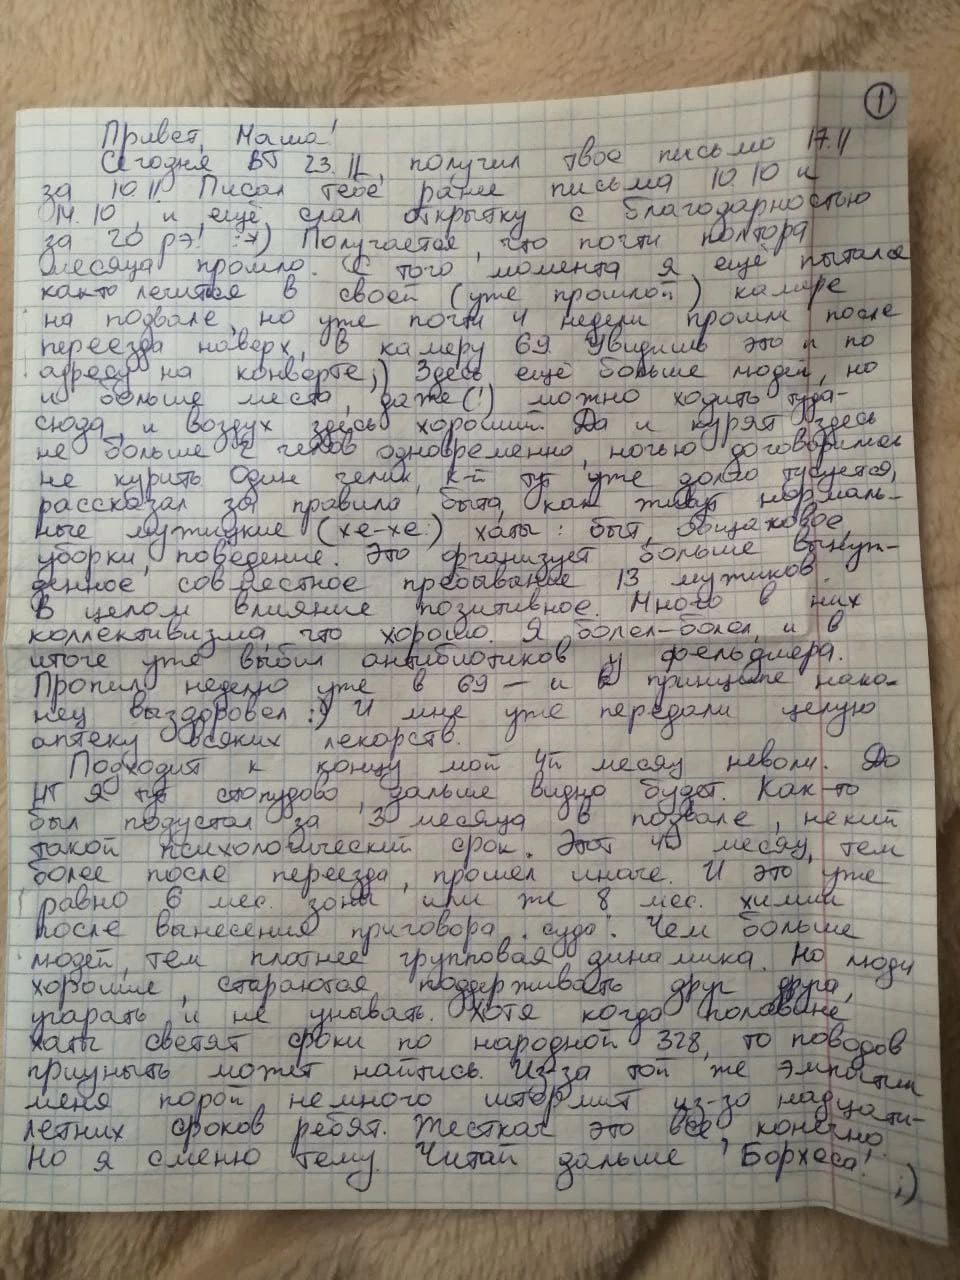 1
Привет, Маша!
Сегодня ВТ 23.11, получил твоё письмо 17.11
за 10.11. Писал тебе ранее письма 10.10 и
14.10, и ещё слал открытку с благодарностью
за 20 рэ! :*) Получается, что почти полтора
месяца прошло. С того момента я ещё пытался
как-то лечится в своей (уже прошлой) камере
на подвале, но уже почти 4 недели прошли после
переезда наверх, в камеру 69. Увидишь это и по
адресу на конверте;) Здесь ещё больше людей, но
и больше места, даже(!) можно ходить туда-
сюда, и воздух здесь хороший. Да и курят здесь
не больше 2 челов одновременно, ночью договорились
не курить. Один челик, к-й тут уже долго тусуется,
рассказал за правила быта, как живут нормаль-
ные мужицкие (хе-хе:) хаты: быт, общаковое,
уборки, поведение. Это организует больше вынуж-
денное совместное пребывание 13 мужиков.
В целом влияние позитивное. Много в них
коллективизма, что хорошо. Я болел-болел, и в
итоге уже выбил антибиотиков у фельдшера.
Пропил неделю уже в 69 – и в принципе нако-
нец выздоровел :) И мне уже передали целую
аптеку всяких лекарств.
Подходит к концу мой 4й месяц неволи. До
НГ я тут стопудово, дальше видно будет. Как-то
был подустал за 3 месяца в подвале, некий
такой психологический срок. Этот 4й месяц, тем
более после переезда, прошел иначе. И это уже
равно 6 мес. зоны или же 8 мес. химии
после вынесения приговора суда. Чем больше
людей, тем плотнее групповая динамика. Но люди
хорошие, стараются поддерживать друг друга,
угарать и не унывать. Хотя когда половине
хаты светят сроки по народной 328, то поводов
приуныть может найтись. Из-за той же эмпатии
меня порой немного штормит из-за надцати-
летних сроков ребят. Жесткач это всё конечно.
Но я сменю тему. Читай дальше "Борхеса"! ;)